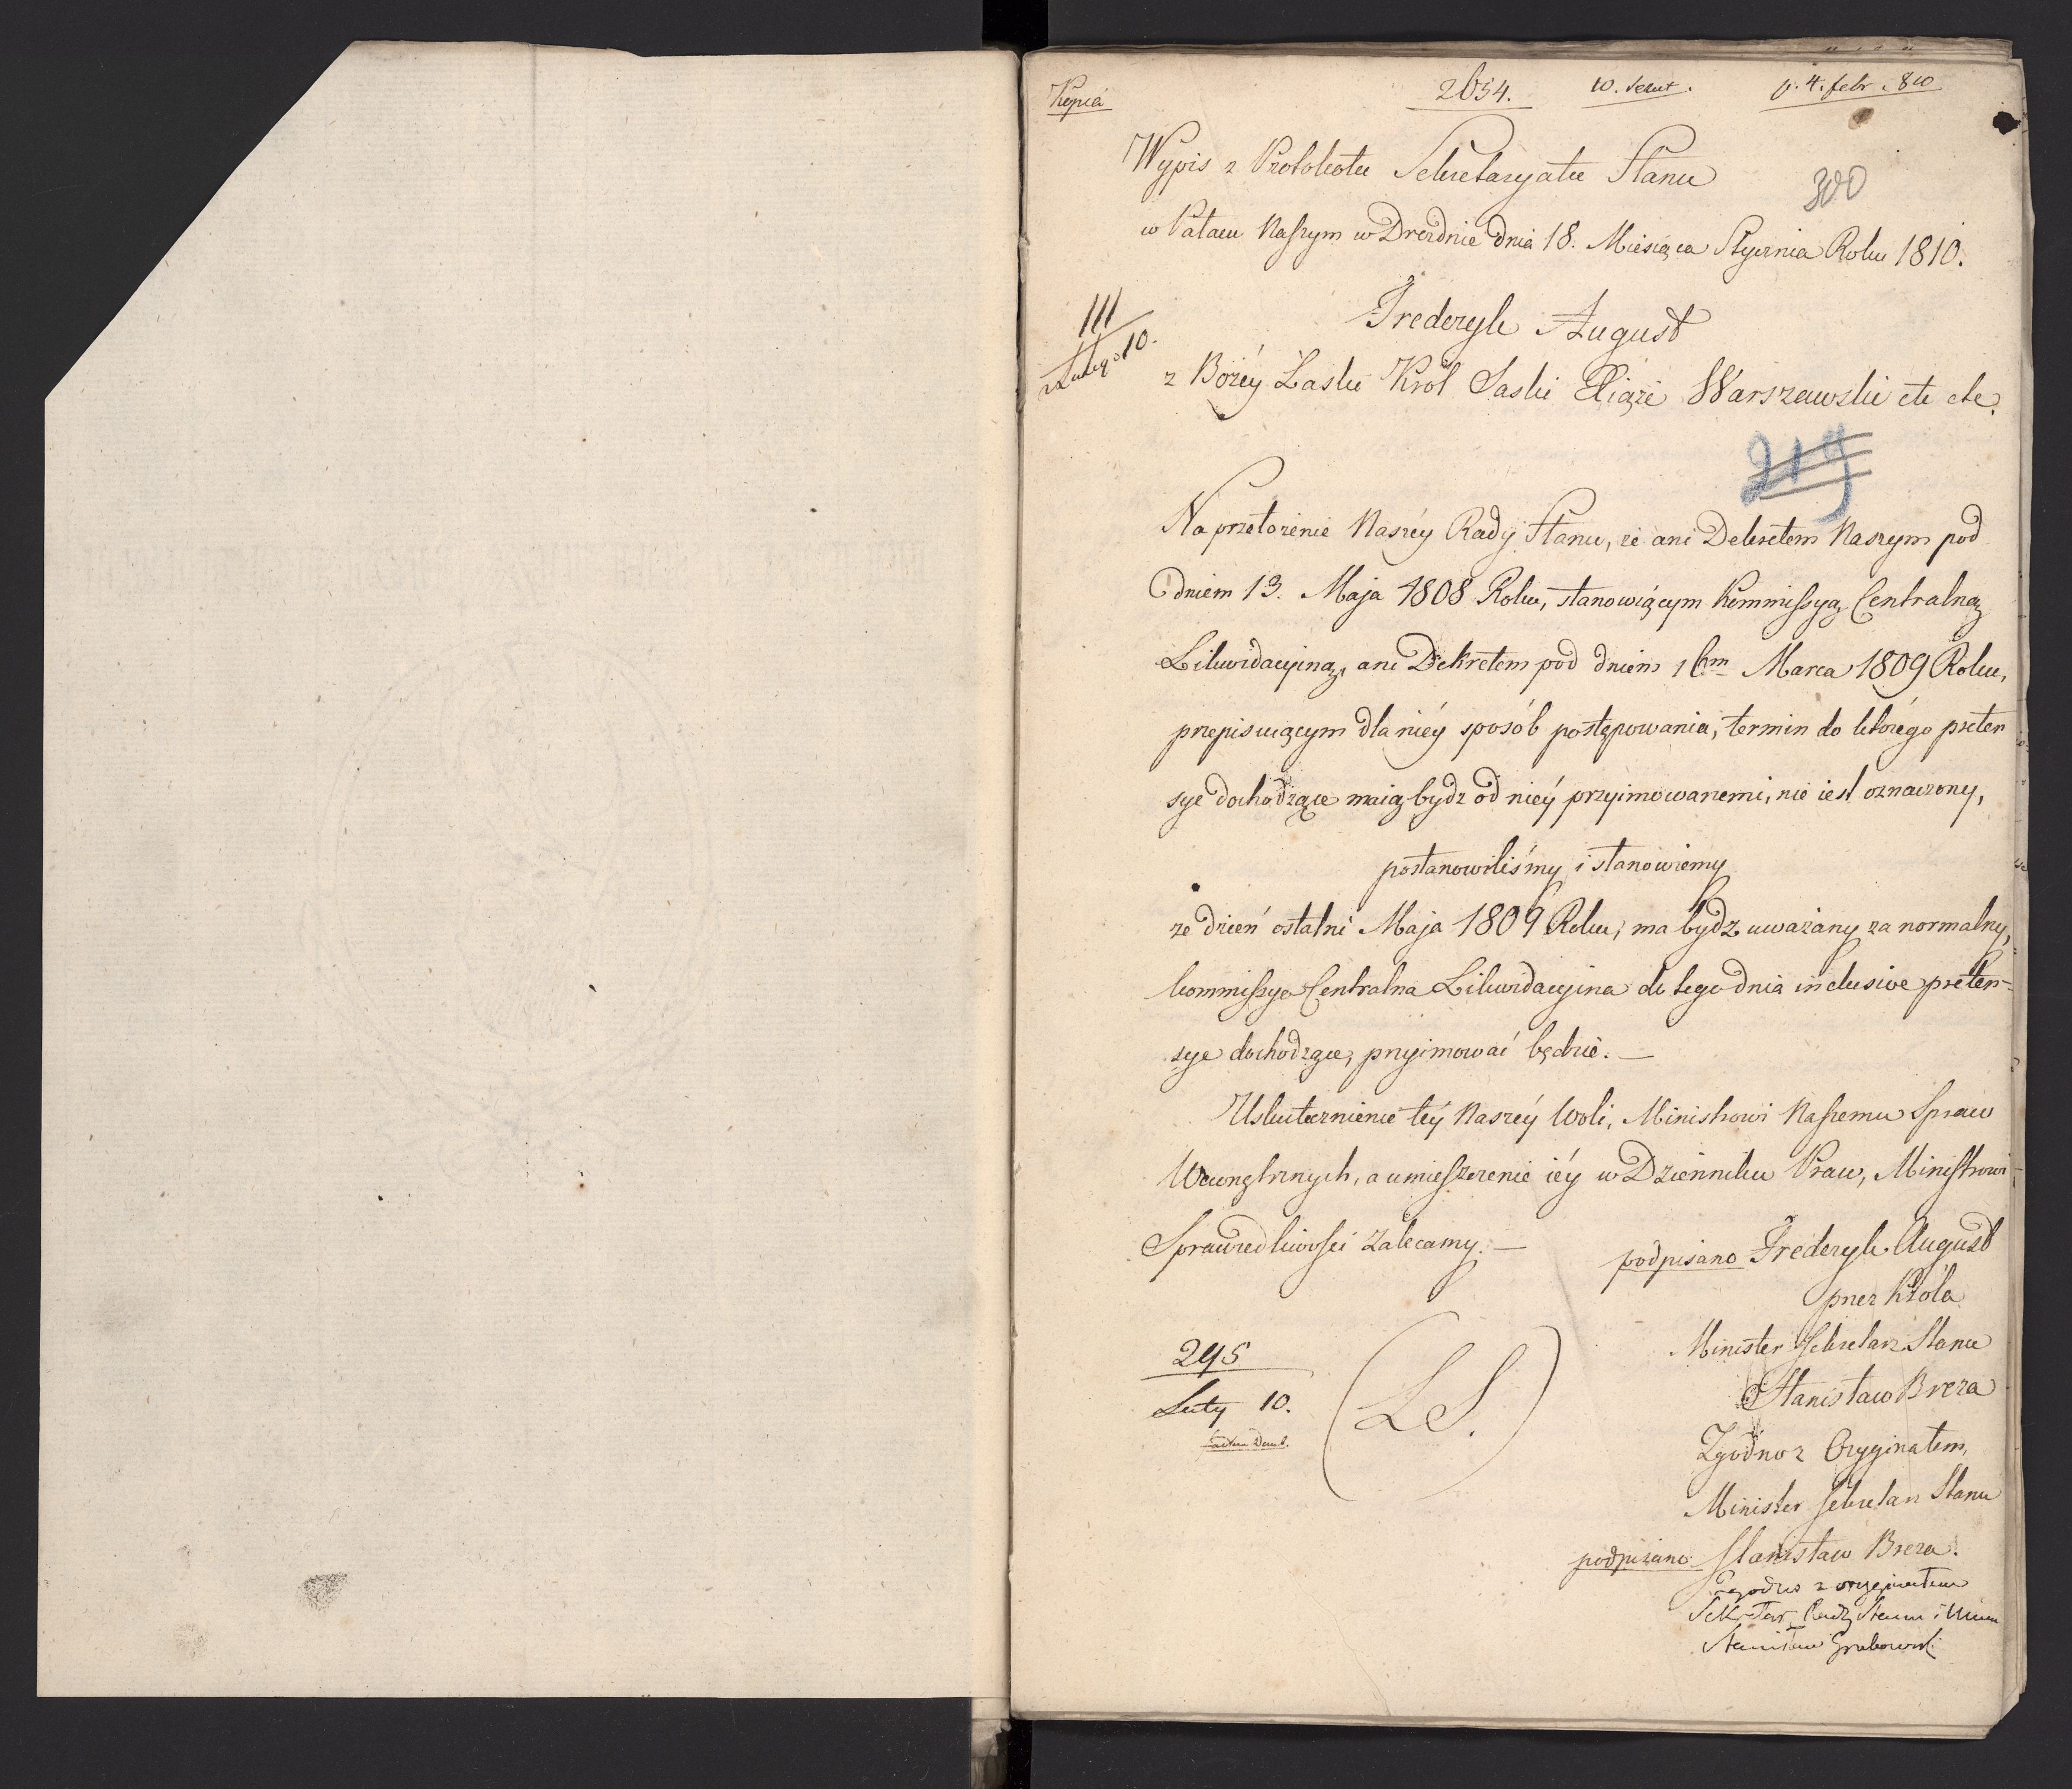 Kopia
2634.
p. 4. febr. 810
Wypis z Protokołu Sekretaryatu Stanu
300
w Pałacu Naszym w Dreznie dnia 18. Miesiąca Stycznia Roku 1810.
111
Lutego 10.
Frederyk August
z Bożéy Łaski Król Saski Xiąże Warszawski etc etc.
219
Na przełożenie Naszéy Rady Stanu, że ani Dekretem Naszym pod
dniem 13. Maja 1808 Roku, stanowiącym Kommissyą Centralną
Likwidacyiną, ani Dekretem pod dniem 16m Marca 1809 Roku,
przepisuiącym dla niéy sposób postępowania, termin do którégo preten
sye dochodzące maią bydz od niéy przyimowanemi, nie iest oznaczony,
postanowiliśmy i stanowiemy
że dzień ostatni Maja 1809 Roku, ma bydz uważany za normalny,
kommissya Centralna Likwidacyina do tego dnia inclusive preten-
sye dochodzące, przyimować będzie. —
Uskutecznienie téy Naszéy Woli, Ministrowi Naszemu Spraw
Wewnętrznych, a umieszczenie iéy w Dzienniku Praw, Ministrowi
Sprawiedliwości zalecamy. —
podpisano Frederyk August
przez Króla
Minister Sekretarz Stanu
Stanisław Breza
295
Luty 10.
(L.S.)
Zgodno z Oryginałem,
Minister Sekretarz Stanu
podpisano Stanisław Breza.
Zgodno z oryginałem
Sekretarz Rady Stanu i Minis
Stanisław Grabowski